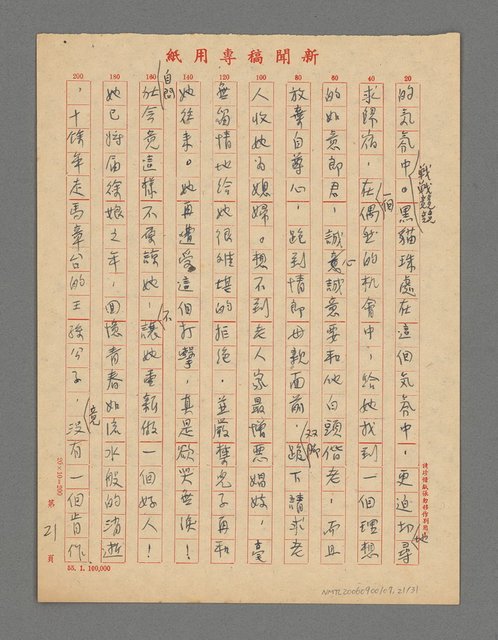 新聞稿專用紙
的氣氛中。黑貓珠處在這個気氛中，更迫切地尋
戰戰兢兢
求歸宿，在一個偶然的机會中，給她找到一個理想
的如意郎君，誠心誠意要和他白頭偕老，而且
放棄自尊心，跑到情郎母親面前，双脚跪下請求老
人收她為媳婦。想不到老人家最憎惡娼妓，毫
無留情地給她很难堪的拒绝，並嚴禁兒子再和
她往来。她再遭受這個打擊，真是欲哭無淚！
自問
社会竟這樣不原諒她，不讓她重新做一個好人！
她已將屆徐娘之年，回憶青春如流水般的消逝
，十餘年走馬章台的王孫公子，竟沒有一個肯作
20
40
60
80
100
120
140
160
180
200
請珍惜紙張勿移作別用
25×10＝200
第21頁
55. 1. 100,000
NMTL20060900109, 21/31